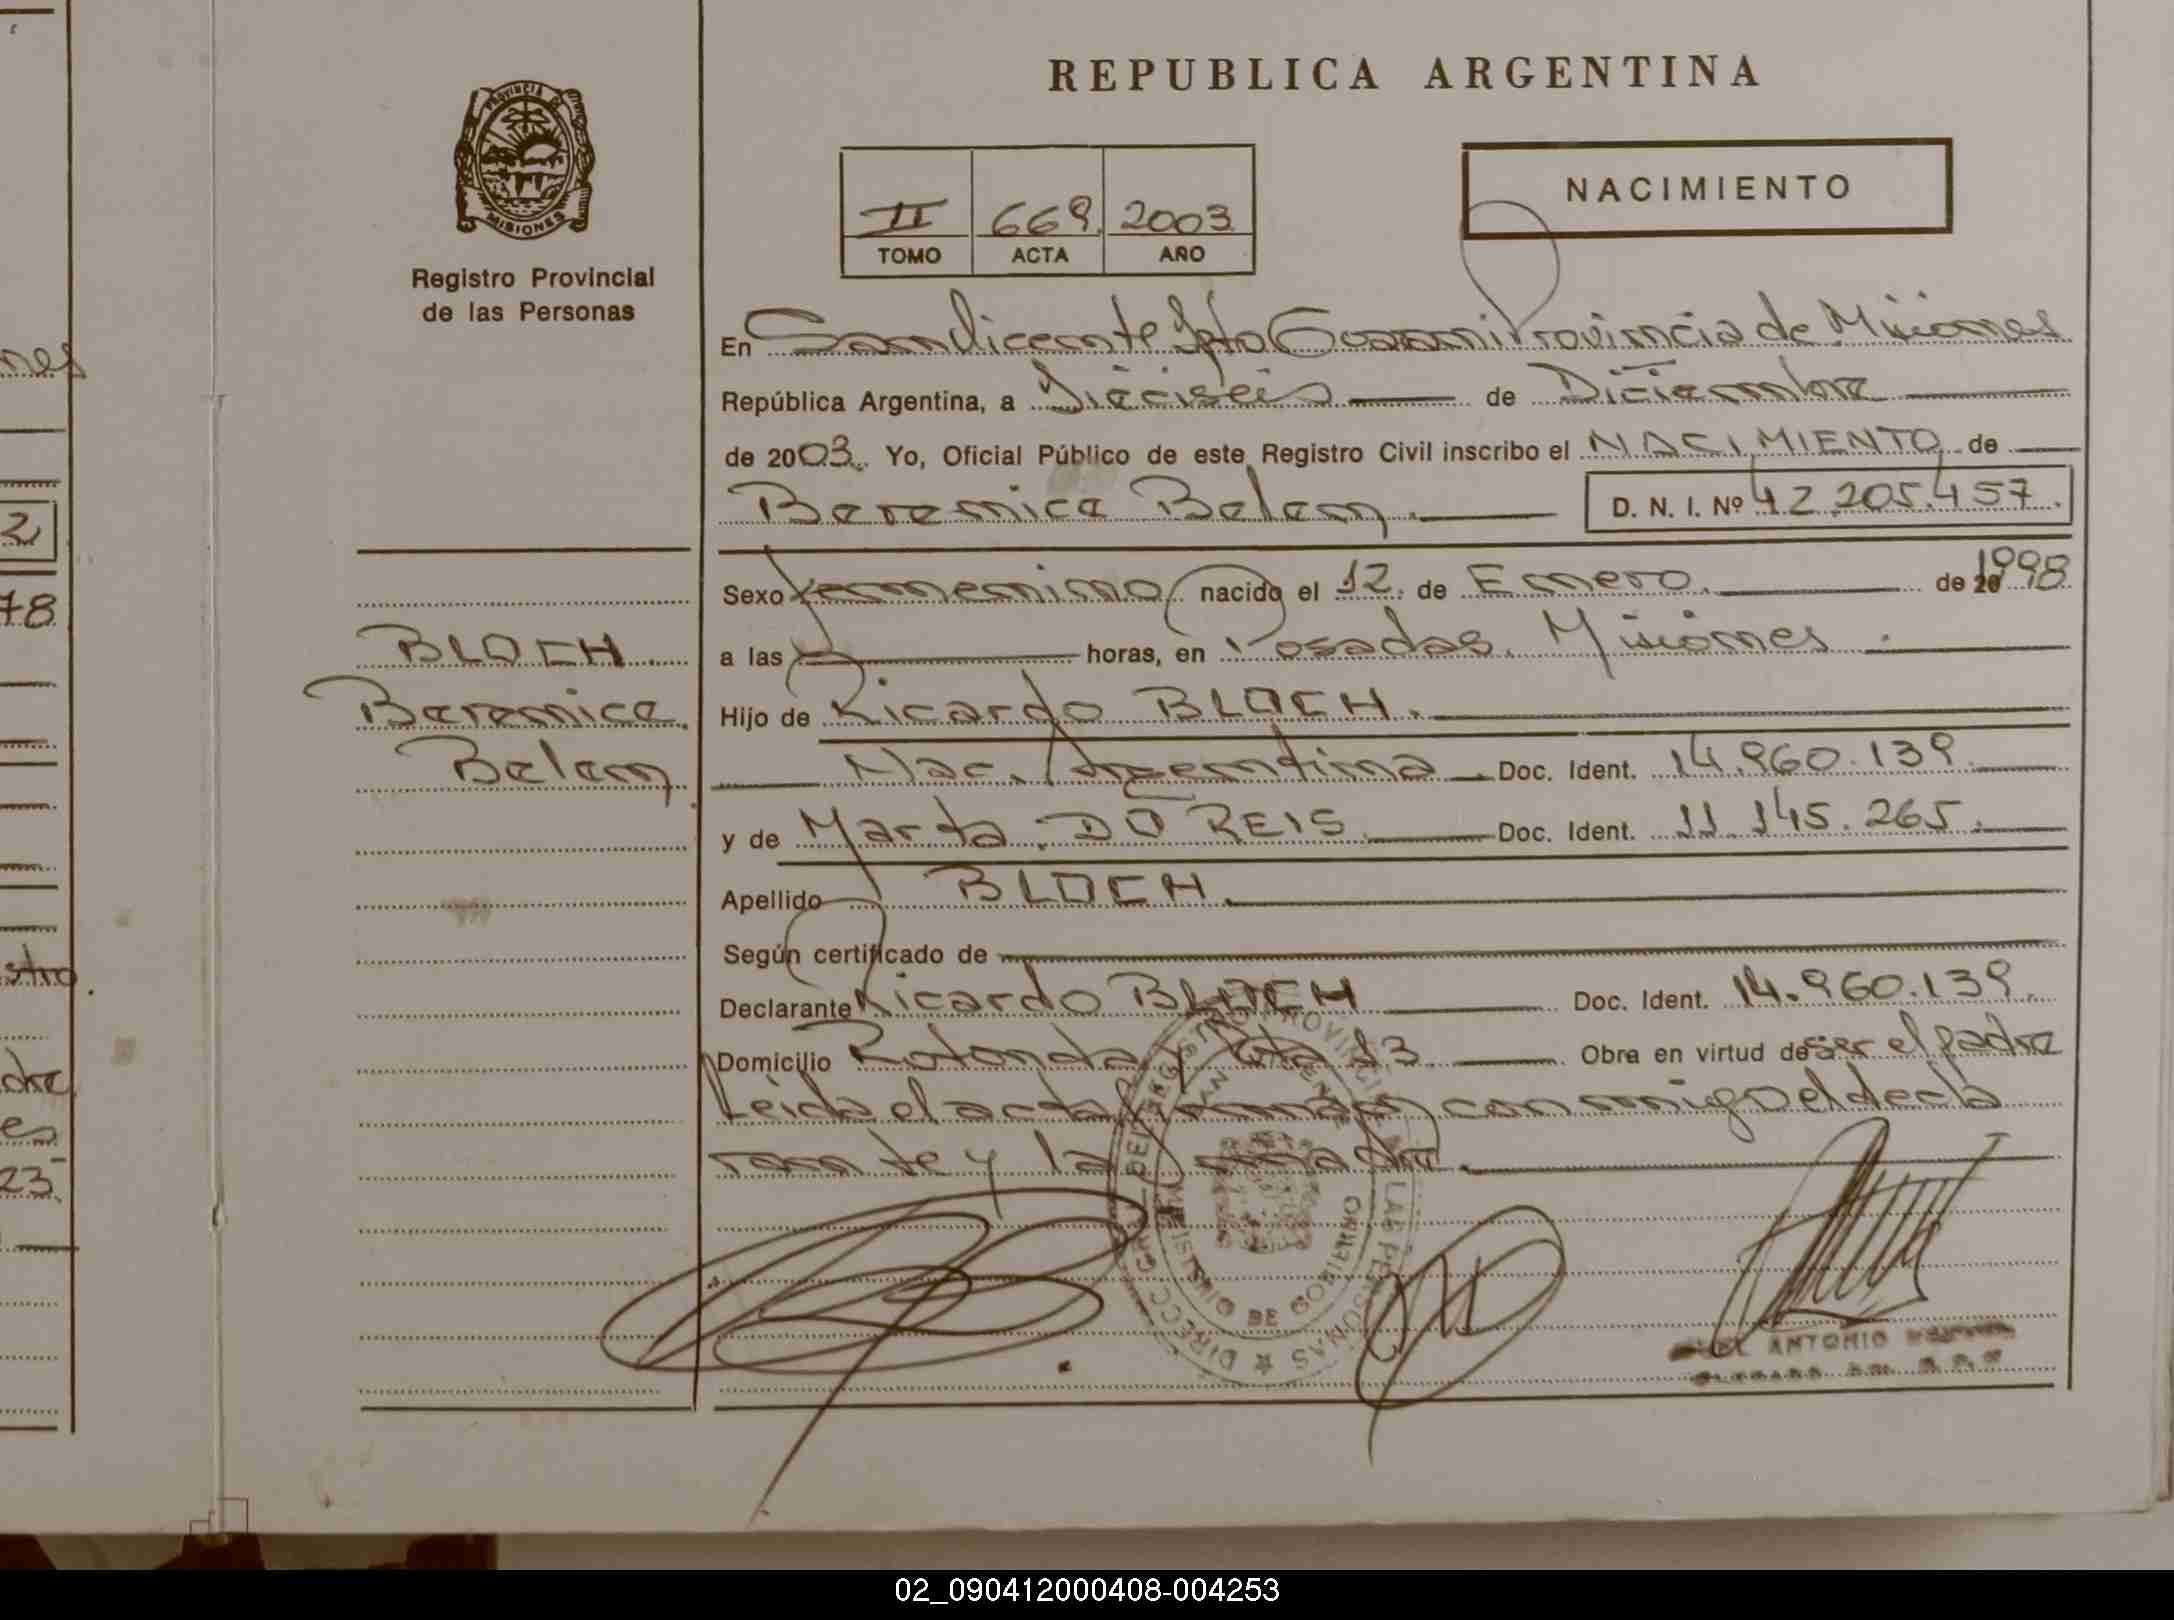 nes
2
78
stro.
dre
es
23
PROVINCIA DE
MISIONES
Registro Provincial
de las Personas
BLOCH
Berenice
Belen
REPUBLICA ARGENTINA
II 669 2003
TOMO ACTA AÑO
NACIMIENTO
En San Vicente Dpto Guarani Provincia de Misiones
República Argentina, a Dieciseis de Diciembre
de 2003. Yo, Oficial Público de este Registro Civil inscribo el NACIMIENTO de
Berenice Belen. D. N. I. Nº 42.205.457.
Sexo femenino nacido el 12 de Enero de 20 1998
a las horas, en Posadas. Misiones
Hijo de Ricardo BLOCH.
Nac. Argentina Doc. Ident. 14.960.139
y de Marta DO REIS Doc. Ident. 11.145.265.
Apellido BLOCH.
Según certificado de
Declarante Ricardo BLOCH Doc. Ident. 14.960.139.
Domicilio Rotonda y Ruta 13 Obra en virtud de ser el padre
Leida el acta firman conmigo el decla
rante y la madre.
DIRECC. GRAL. DEL REGISTRO PROVINCIAL DE LAS PERSONAS
MINISTERIO DE GOBIERNO
SAN VICENTE
ANTONIO
02_090412000408-004253